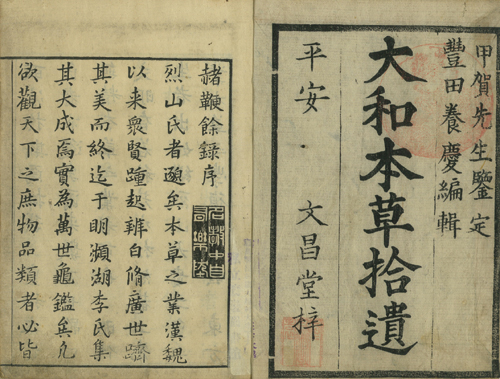 甲賀先生鑒定
豐田養慶編輯
大和本草拾遺
平安 文昌堂梓
赭鞭餘錄序
烈山氏者邈矣本草之業漢魏
以来衆賢踵起辨白脩廣世躋
其美而終迄于明瀕湖李氏集
其大成焉實為萬世龜鑑矣凡
欲觀天下之庶物品類者必皆